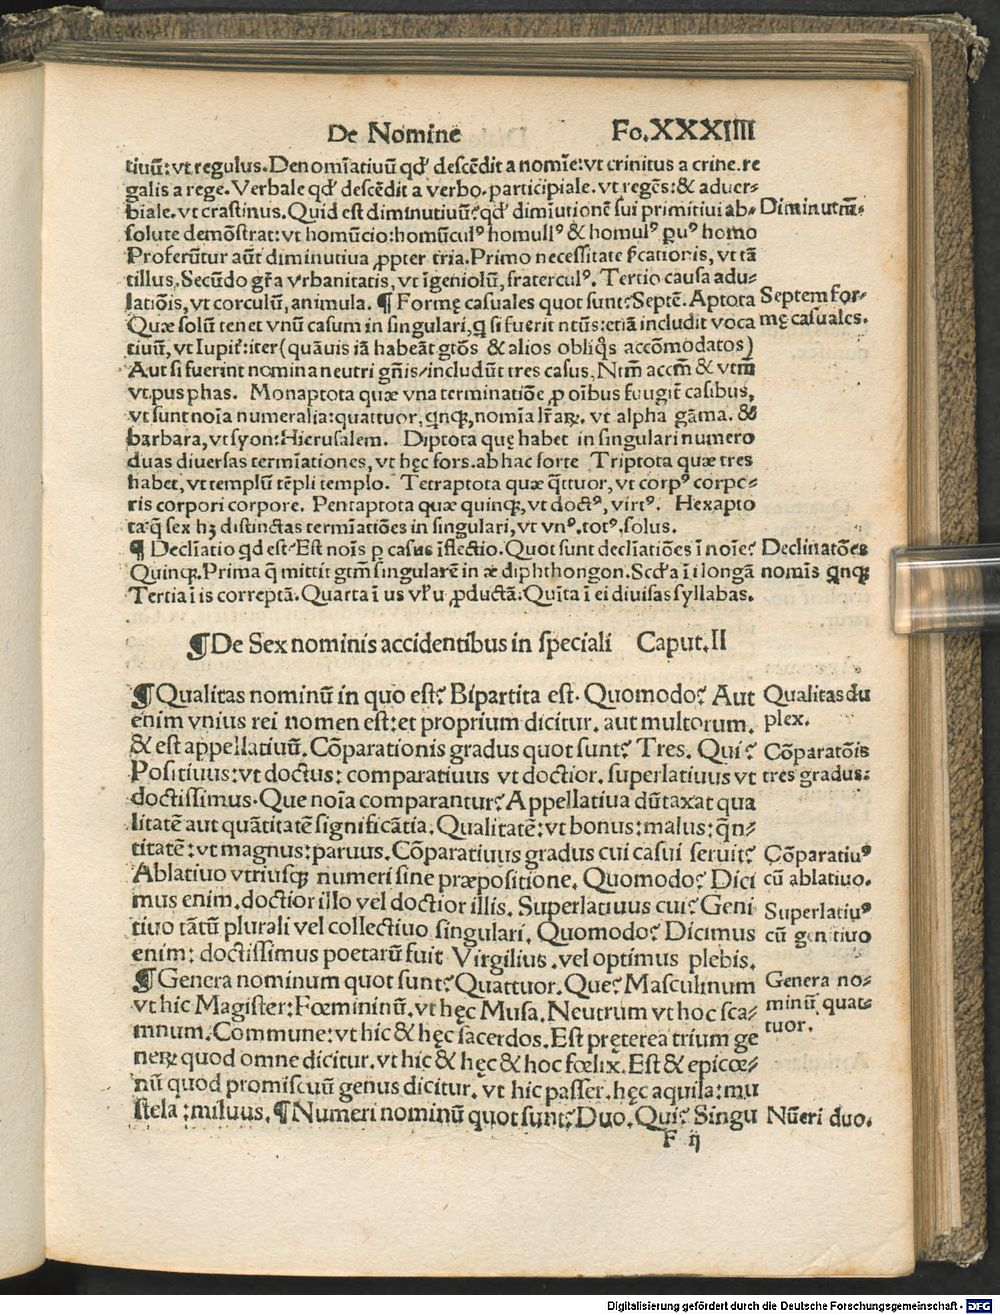 De Nomine Fo.XXXIIII
tiuū:vt regulus.Denomīatiuū qđ descēdit a nomīe:vt crinitus a crine.re
galis a rege.Verbale qđ descēdit a verbo.participiale.vt regēs:& aduer⸗
biale.vt crastinus.Quid est diminutiuū?qđ dimīutionē sui primitiui ab⸗
Diminutiū⸗
solute demōstrat:vt homūcio:homūculꝰ homullꝰ & homulꝰ ꝑuꝰ homo
Proferūtur aūt diminutiua ꝓpter tria.Primo necessitate ſ̄cationis,vt tā
tillus.Secūdo gr̄a vrbanitatis,vt īgeniolū,fraterculꝰ.Tertio causa adu⸗
latiōis,vt corculū,animula. ¶ Formę casuales quot sunt?Septē.Aptota
Septem for⸗
mę casuales.
Quæ solū tenet vnū casum in singulari,ꝙ si fuerit ntūs:etiā includit voca
tiuū,vt Iupit̄:iter(quāuis iā habeāt gtōs & alios obliq̄s accōmodatos)
Aut si fuerint nomina neutri gn̄is/includūt tres casus.Ntm̄ accm̄ & vtm̄
vt.pus phas. Monaptota quæ vna terminatiōe ꝓ oībus fungit̄ casibus,
vt sunt noīa numeralia:quattuor,qnqꝫ,nomīa lr̄aꝝ. vt alpha gāma. &
barbara,vt syon:Hierusalem. Diptota quę habet in singulari numero
duas diuersas termīationes,vt hęc fors.ab hac forte Triptota quæ tres
habet,vt templū tēpli templo. Tetraptota quæ q̄ttuor,vt corpꝰ corpo⸗
ris corpori corpore. Pentaptota quæ quinqꝫ,vt doctꝰ,virtꝰ. Hexapto
ta:q̄ sex hꝫ distinctas termīatiōes in singulari,vt vnꝰ.totꝰ.solus.
¶ Declīatio qd est?Est noīs ꝑ casus īflectio.Quot sunt declīatiōes ī noīe?
Declinatōes
nomīs qnqꝫ
Quinqꝫ.Prima q̄ mittit gtm̄ singularē in æ diphthongon.Scđa ī i longā
Tertia ī is correptā.Quarta ī us vl̓ u ꝓductā:Quīta ī ei diuisas syllabas.
¶De Sex nominis accidentibus in speciali Caput.II
¶Qualitas nominū in quo est? Bipartita est. Quomodo? Aut
Qualitas du
plex.
enim vnius rei nomen est:et proprium dicitur. aut multorum.
& est appellatiuū.Cōparationis gradus quot sunt? Tres. Qui?
Cōparatōis
tres gradus:
Positiuus:vt doctus: comparatiuus vt doctior. superlatiuus vt
doctissimus.Que noīa comparantur?Appellatiua dūtaxat qua
litatē aut quātitatē significātia.Qualitatē:vt bonus:malus:q̄n⸗
titatē:vt magnus:paruus.Cōparatiuus gradus cui casui seruit?
Cōparatiuꝰ
cū ablatiuo.
Ablatiuo vtriusqꝫ numeri sine præpositione. Quomodo? Dici
mus enim.doctior illo vel doctior illis. Superlatiuus cui? Geni
Superlatiuꝰ
cū genitiuo
tiuo tātū plurali vel collectiuo singulari. Quomodo? Dicimus
enim: doctissimus poetarū fuit Virgilius .vel optimus plebis.
¶Genera nominum quot sunt?Quattuor.Que? Masculinum
Genera no⸗
minū quat⸗
tuor.
vt hic Magister:Fœmininū.vt hęc Musa.Neutrum vt hoc sca⸗
mnum.Commune:vt hic & hęc sacerdos.Est pręterea trium ge
neꝝ quod omne dicitur.vt hic & hęc & hoc fœlix.Est & epicœ⸗
nū quod promiscuū genus dicitur. vt hic passer.hęc aquila:mu
stela :miluus.¶Numeri nominū quot sunt? Duo.Qui? Singu
Nūeri duo.
F ij
Digitalisierung gefördert durch die Deutsche Forschungsgemeinschaft - DFG